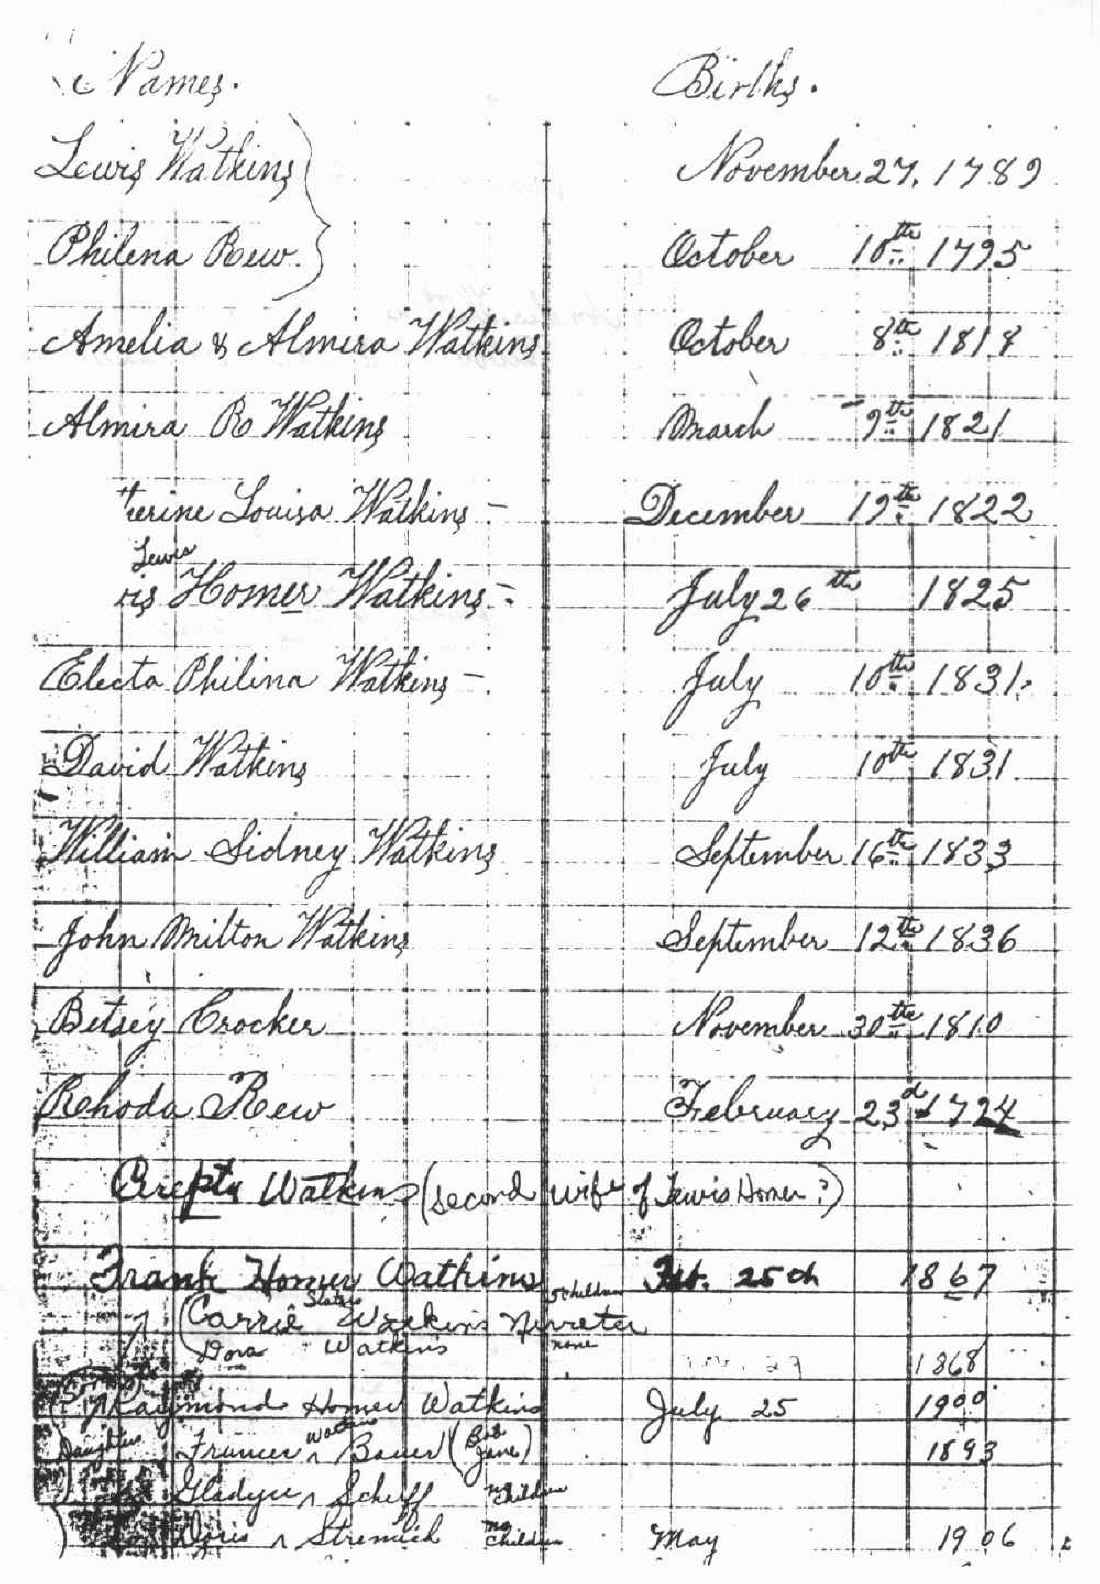 Names. Births.
Lewis Watkins November 27, 1789
Philena Rew. October 10th 1795
Amelia & Almira Watkins October 8th 1818
Almira R Watkins March 9th 1821
erine Louisa Watkins - December 19th 1822
Lewis
is Homer Watkins - July 26th 1825
Electa Philina Watkins - July 10th 1831.
David Watkins July 10th 1831
William Sidney Watkins September 16th 1833
John Milton Watkins September 12th 1836
Betsey Crocker November 30th 1810
Rhoda Rew February 23d 1724
Watkins (second wife of Lewis Homer?)
Frank Homer Watkins Feb. 25th 1867
5 children
Carrie Watkins
Dora Watkins none 1868
Raymond Homer Watkins July 25 1900
Daughters Frances Watkins Bauer (Bob Jane) 1893
Scheff no children
Doris Stremich no children May 1906